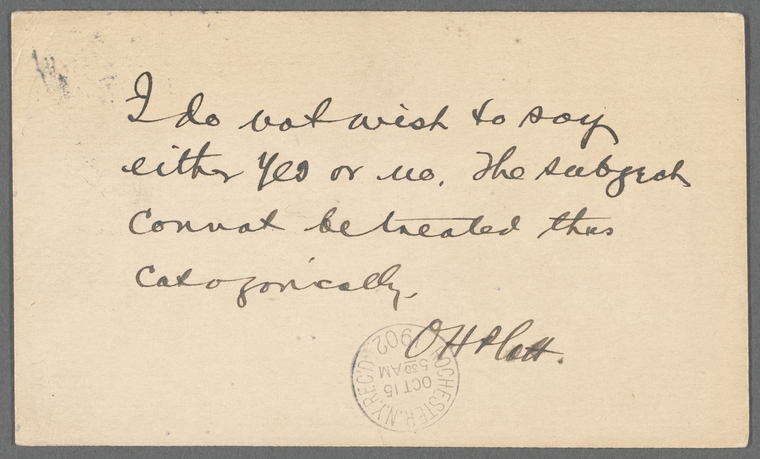 I do not wish to say
either Yes or no. The subject
connot be treated thus
Catogorically.
O H Platt.
ROCHESTER, N.Y. REC'D.
OCT 15
5 30 AM
1902